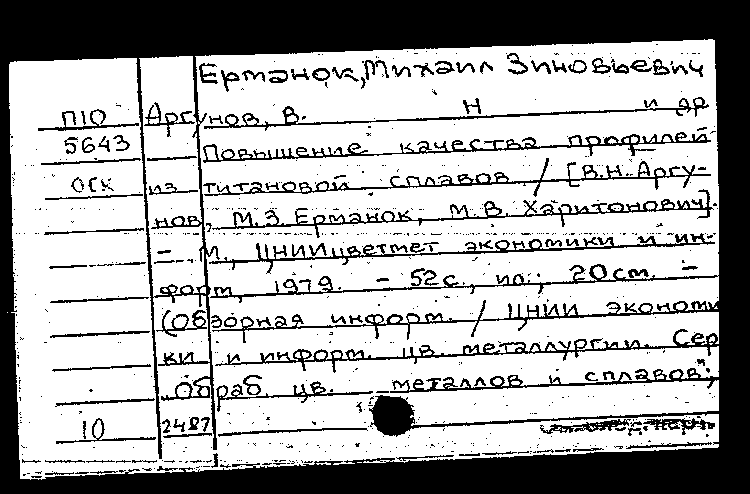 Ерманок, Михаил Зиновьевич
П10 Аргунов, В. Н и др
5643 Повышение качества профилей
ОСК из титановой сплавов / [В.Н. Аргу-
нов, М.З. Ерманок, М.В. Харитонович].
- М., ЦНИИцветмет экономики и ин-
форм, 1979. - 52с., ил.; 20см. -
(Обзорная информ. / ЦНИИ экономи
ки и информ. цв. металлургии. Сер
"Обраб. цв. металлов и сплавов";
10 2487